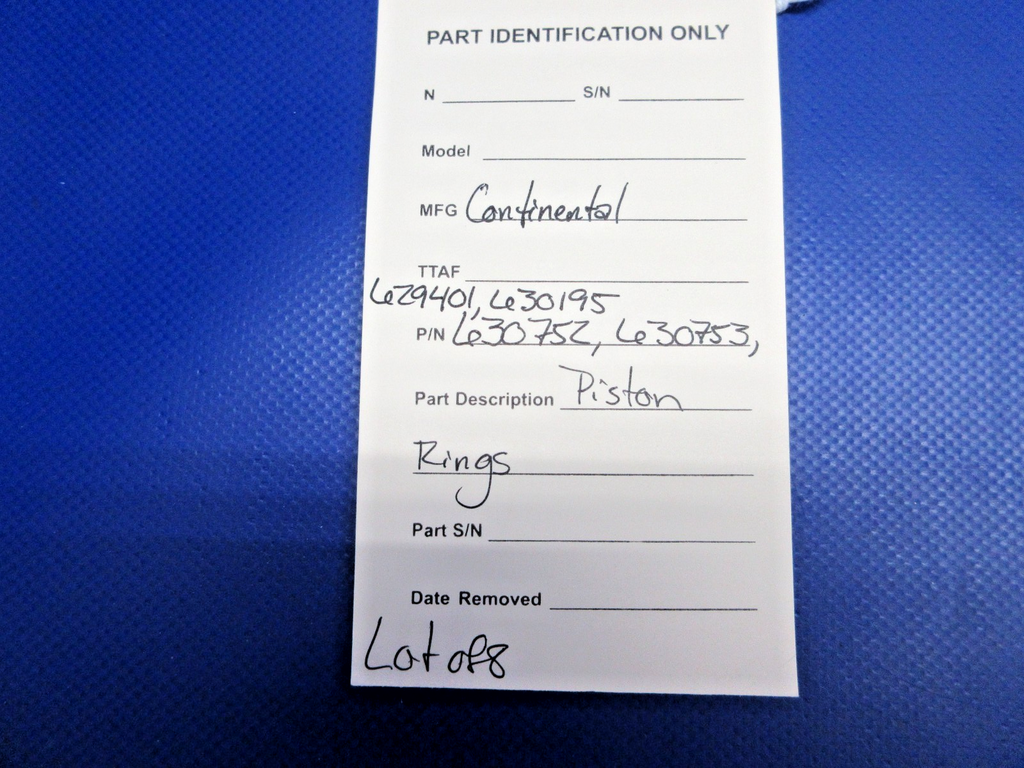 PART IDENTIFICATION ONLY
N S/N
Model
MFG Continental
TTAF
629401, 630195
P/N 630752, 630753,
Part Description Piston
Rings
Part S/N
Date Removed
Lot of 8